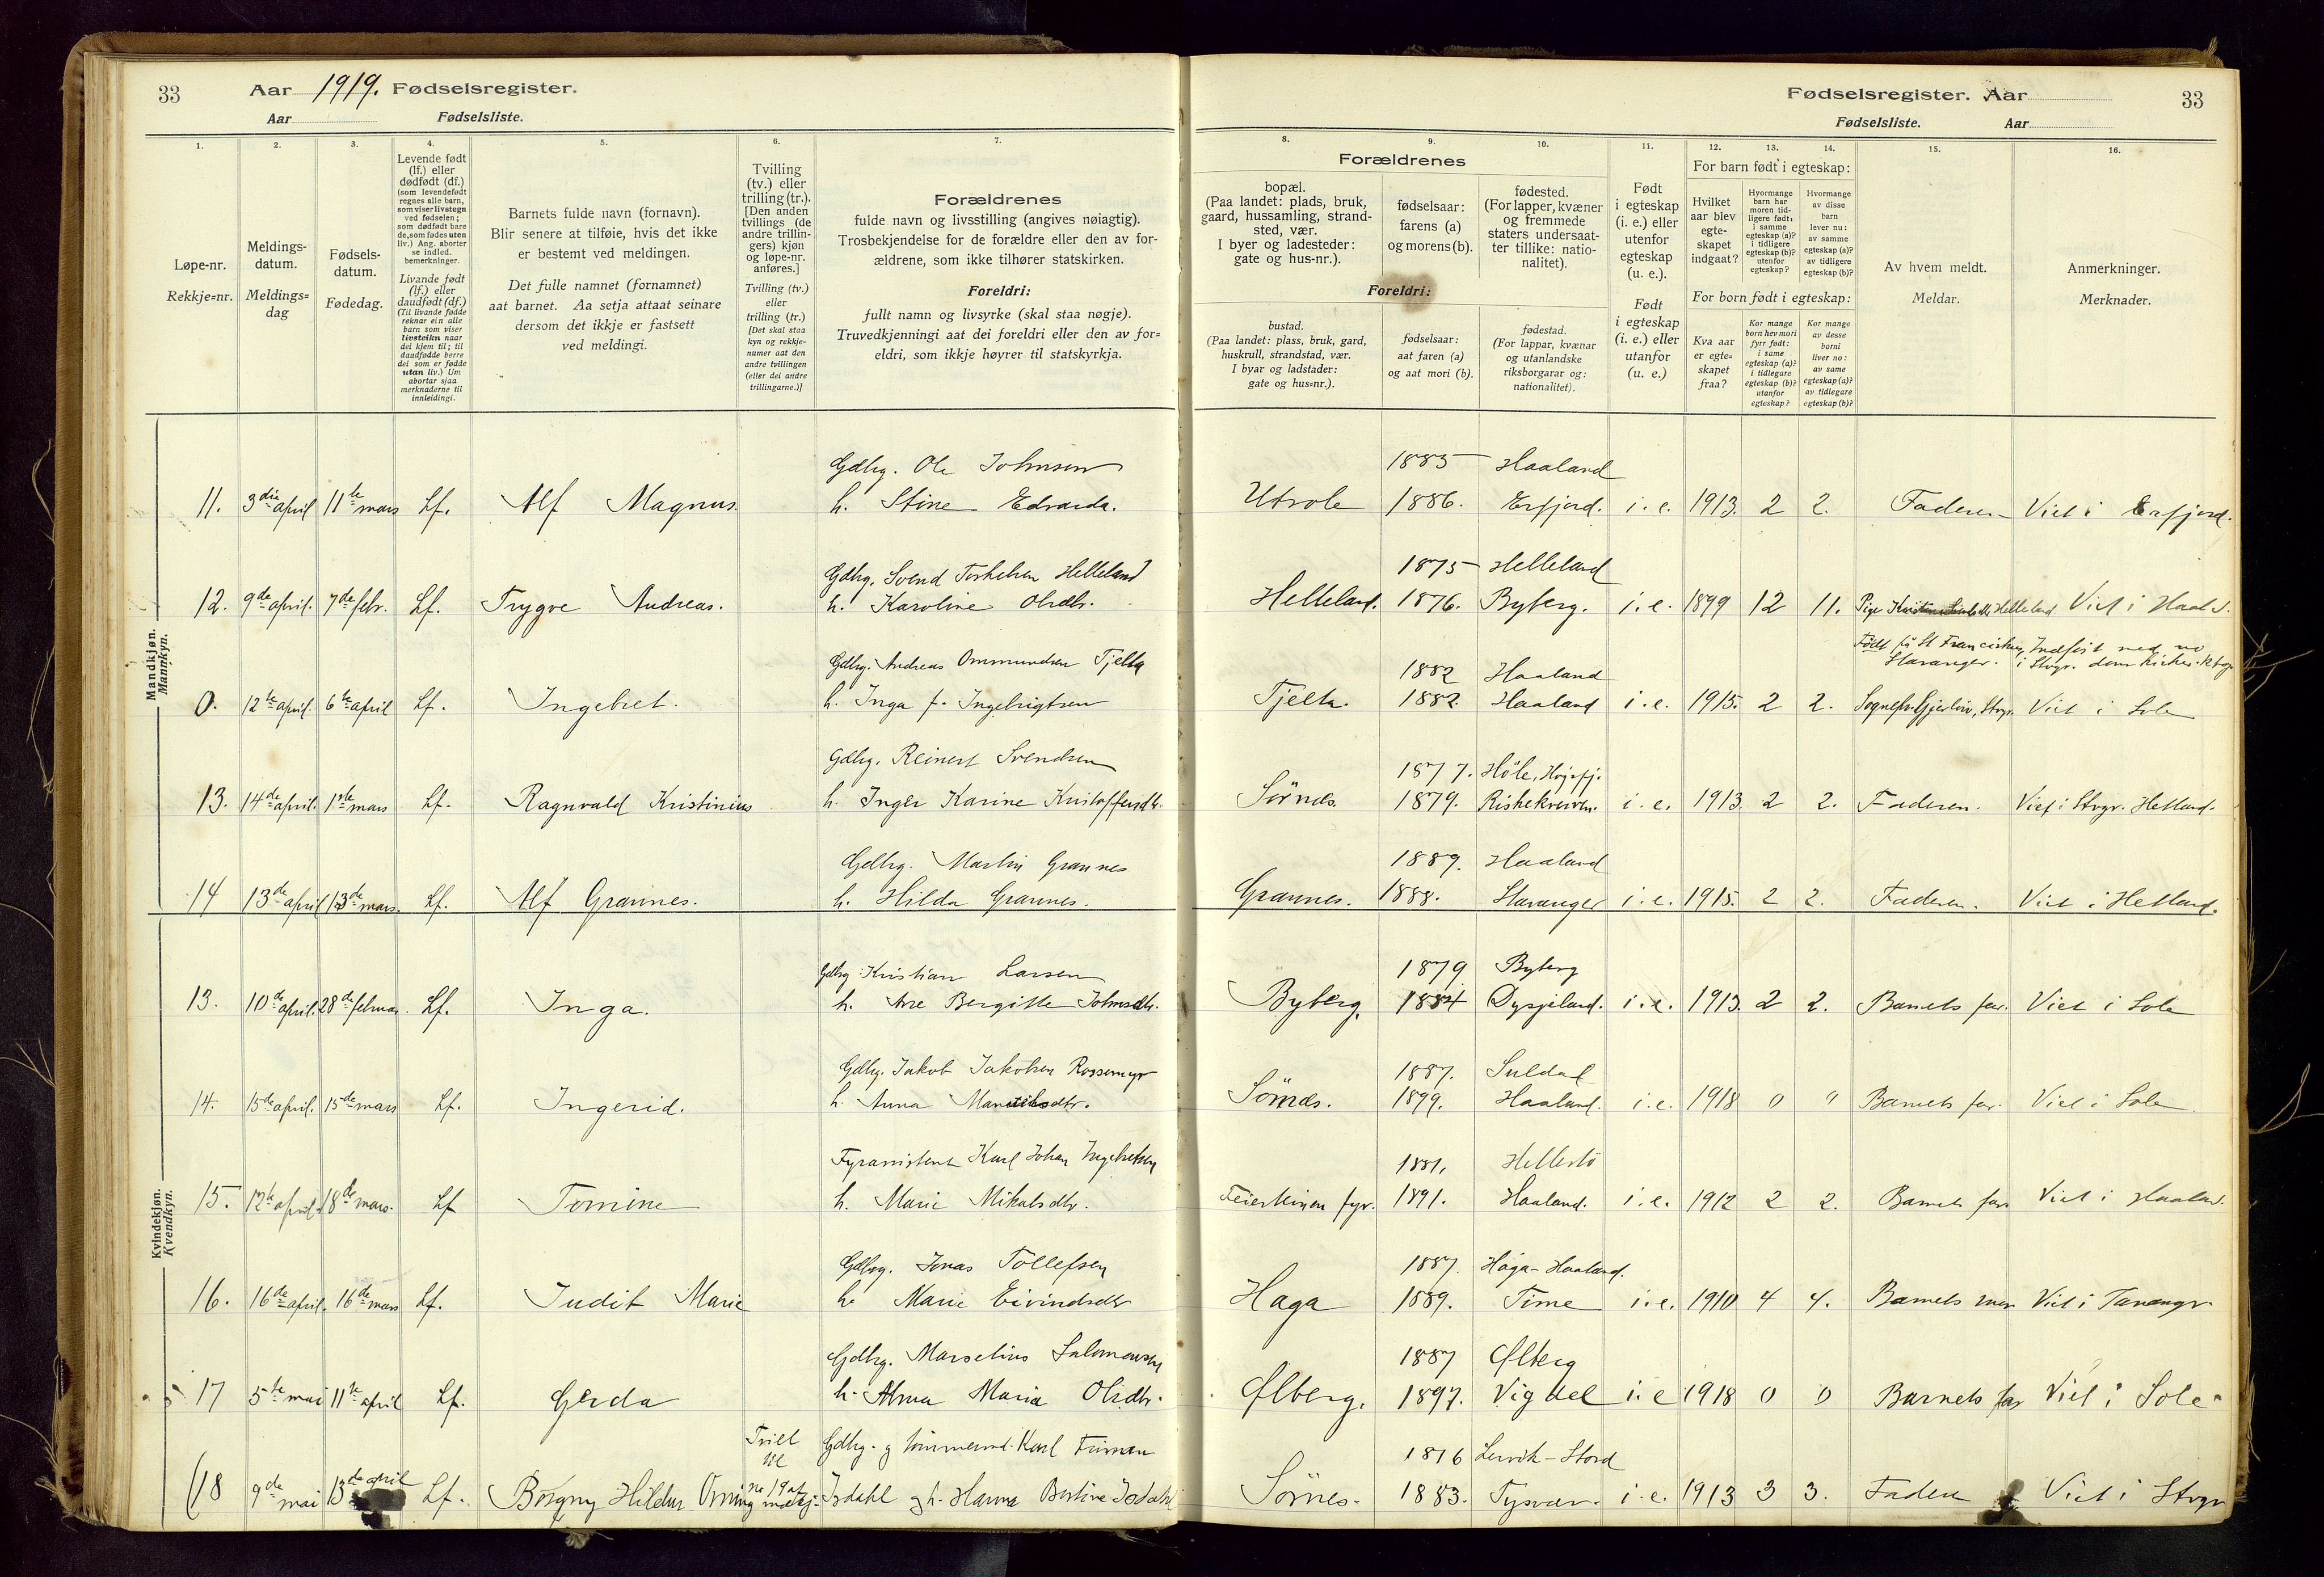 33 Aar 1919. Fødselsregister.
Aar Fødselsliste.
Fødselsregister. Aar 33
Fødselsliste. Aar
1. 2. 3. 4. 5. 6. 7.
Løpe-nr.
Rekkje=nr.
Meldings-
datum.
Meldings=
dag
Fødsels-
datum.
Fødedag.
Levende født
(lf.) eller
dødfødt (df.)
(som levendefødt
regnes alle barn,
som viser livstegn
ved fødselen;
som dødfødt bare
de, som fødes uten
liv.) Ang. aborter
se indled.
bemerkninger.
Livande født
(lf.) eller
daudfødt (df.)
(Til livande fødde
reknar ein alle
barn som viser
livsteikn naar
dei kjem til; til
daudfødde berre
dei som er fødde
utan liv.) Um
abortar sjaa
merknaderne til
innleidingi.
Barnets fulde navn (fornavn).
Blir senere at tilføie, hvis det ikke
er bestemt ved meldingen.
Det fulle namnet (fornamnet)
aat barnet. Aa setja attaat seinare
dersom det ikkje er fastsett
ved meldingi.
Tvilling
(tv.) eller
trilling (tr.).
[Den anden
tvillings (de
andre trillin-
gers) kjøn
og løpe-nr.
anføres.]
Tvilling (tv.)
eller
trilling (tr.)
[Det skal staa
kyn og rekkje-
numer aat den
andre tvillingen
(eller dei andre
trillingarne.)]
Forældrenes
fulde navn og livsstilling (angives nøiagtig).
Trosbekjendelse for de forældre eller den av for-
ældrene, som ikke tilhører statskirken.
Foreldri:
fullt namn og livsyrke (skal staa nøgje).
Truvedkjenningi aat dei foreldri eller den av for=
eldri, som ikkje høyrer til statskyrkja.
8. 9. 10. 11. 12. 13. 14. 15. 16.
Forældrenes
bopæl.
(Paa landet: plads, bruk,
gaard, hussamling, strand-
sted, vær.
I byer og ladesteder:
gate og hus-nr.).
fødselsaar:
farens (a)
og morens (b).
fødested.
(For lapper, kvæner
og fremmede
staters undersaat-
ter tillike: natio-
nalitet).
Foreldri:
bustad.
(Paa landet: plass, bruk, gard,
huskrull, strandstad, vær.
I byar og ladstader:
gate og hus=nr.).
fødselsaar:
aat faren (a)
og aat mori (b).
fødestad.
(For lappar, kvænar
og utanlandske
riksborgarar og:
nationalitet).
Født
i egteskap
(i. e.) eller
utenfor
egteskap
(u. e.).
Født
i egteskap
(i. e.) eller
utanfor
(u. e.)
For barn født i egteskap:
Hvilket
aar blev
egte-
skapet
indgaat?
Hvormange
barn har
moren tid-
ligere født:
i samme
egteskap (a)?
i tidligere
egteskap (b)?
utenfor
egteskap?
Hvormange
av disse
barn
lever nu:
av samme
egteskap (a)?
av tidligere
egteskap (b)?
For born født i egteskap:
Kva aar
er egte=
skapet
fraa?
Kor mange
born hev mori
fyrr født:
i same
egteskap (a)?
i tidlegare
egteskap (b)?
utanfor
egteskap?
Kor mange
av desse
borni
liver no:
av same
egteskap (a)?
av tidlegare
egteskap (b)?
Av hvem meldt.
Meldar.
Anmerkninger.
Merknader.
Mandkjøn.
Mannkyn.
Gdbg. Ole Johnsen 1885 Haaland
11. 3die april 11te mars Lf. Alf Magnus. h. Stine Edvarda. Utsole 1886. Erfjord. i. e. 1913. 2 2. Faderen Viet i Erfjord.
Gdbg. Svend Torkelsen Helleland 1875 Helleland
12. 9de april. 7de febr. Lf. Trygve Andreas. h. Karoline Olsdtr. Helleland. 1876. Byberg. i. e. 1899 12 11. Pige Helleland Viet i Haal.
Gdbg. Andreas Ommundsen Tjelta 1882 Haaland Født på St Franciskus, Stavanger. Indført med no i Stvgr. domkirkes
0. 12te april. 6te april Lf. Ingebret. h. Inga f. Ingebrigtsen Tjelta. 1882. Haaland i. e. 1915. 2 2. Stvgr. Viet i Sole
Gdbg. Reinert Svendsen 1877. Höle, Høgsfj.
13. 14de april. 1ste mars Lf. Ragnvald Kristinius h. Inger Karine Kristoffersdtr. Sørnes. 1879. Riskekverven. i. e. 1913. 2 2. Faderen. Viet i Stvgr. Hetland.
Gdbg. Martin Grannes 1889. Haaland
14 13de april 13de mars. Lf. Alf Grannes. h. Hilda Grannes. Grannes. 1888. Stavanger i. e. 1915. 2 2. Faderen. Viet i Hetland.
Kvindekjøn.
Kvendkyn.
Gdbg. Kristian Larsen 1879 Byberg
13. 10de april. 28de februar. Lf. Inga. h. Ane Bergitte Johnsdtr. Byberg. 1884 Dysjeland. i. e. 1913. 2 2. Barnets far. Viet i Sole
Gdbg. Jakob Jakobsen Rossemyr 1887. Suldal
14. 15de april. 15de mars Lf. Ingerid. h. Anna Sömnes. 1899. Haaland. i. e. 1918 0 " Barnets far. Viet i Sole
Fyrassistent Karl Johan Ingebretsen 1881. Hellestö
15. 12te april. 18de mars. Lf Tomine h. Marie Mikalsdtr. Feiesteinen fyr. 1891. Haaland. i. e. 1912 2 2. Barnets far Viet i Haaland.
Gdbg. Jonas Tollefsen 1887. Haga - Haaland.
16. 16de april. 16de mars Lf. Judit Marie h. Marie Eivindsdtr Haga 1889. Time i. e. 1910 4 4. Barnets mor Viet i Tananger.
Gdbg. Marselius Salomonsen 1887 Ølberg
17 5te mai 11te april Lf. Gerda h. Alma Maria Olsdtr. Ølberg. 1897. Vigdel i. e 1918 0 0 Barnets far Viet i Sole
Tvill Gdbg. og tømmermd. Karl Furman 1876 Lervik - Stord
18 9de mai 13de april Lf. Borgny Hildur Orning no 19 Isdahl og h. Hanna Bertine Isdahl Sörnes. 1883. Tysvær. i. e. 1913 3 3. Faderen Viet i Stvgr